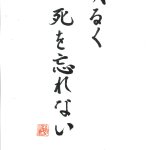 るく
死を忘れない